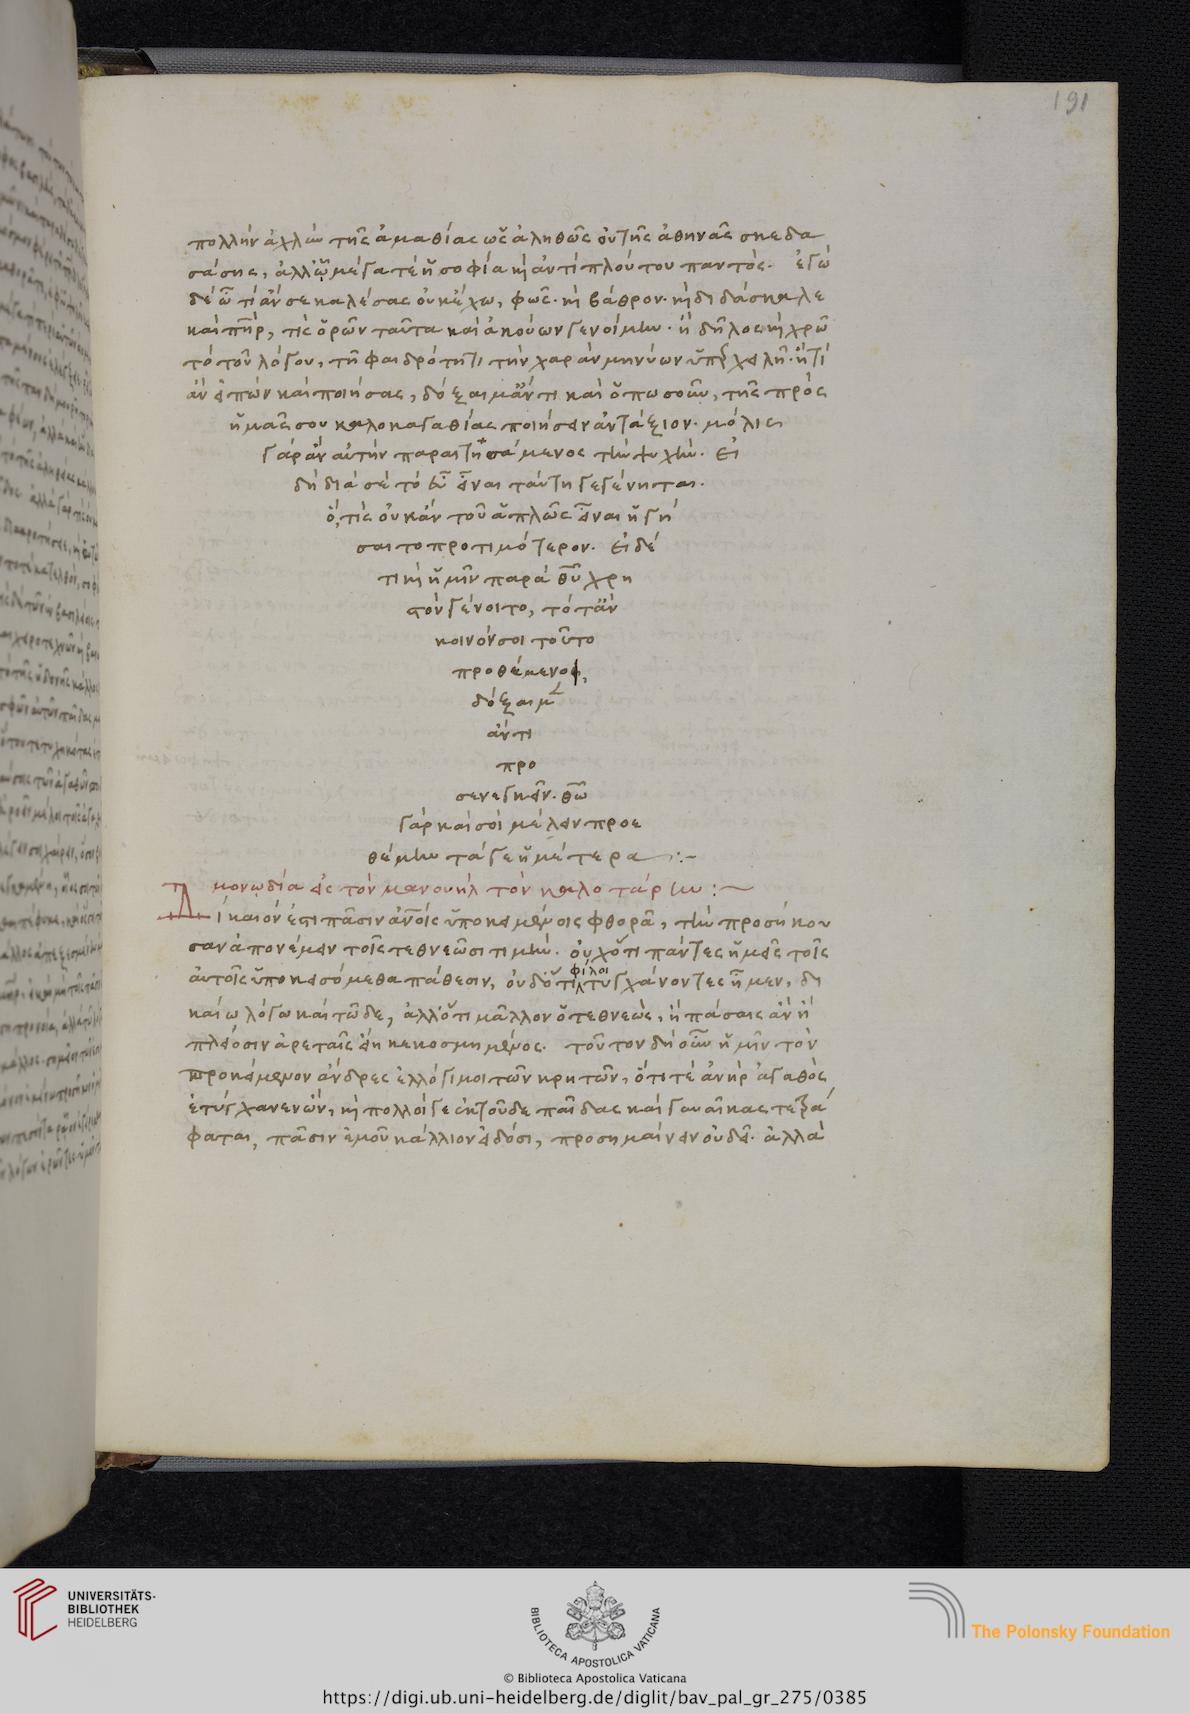 191
πολλὴν ἀχλὺν τῆς ἀμαθίας ὡς ἀληθῶς οὐ τῆς ἀθηνᾶς σκεδα
σάσης, ἀλλ' ὦ μέγα τὲ ἢ σοφία κὴ ἀντὶ πλούτου παντὸς. ἐγὼ
δὲ ὦ τί ἄν σε καλέσας οὐκ ἔχω, φῶς. κὴ βάθρον. κὴ διδάσκαλε
καὶ πῆρ, τίς ὁρῶν ταῦτα καὶ ἀκούων γενοίμην. ἢ δῆλος κὴ χρῶ
τὸ τοῦ λόγου, τῆ φαιδρότητι τὴν χαρὰν μηνύων
ἂν εἰπὼν καὶ ποιήσας, δόξαιμ' ἄν τι καὶ ὁπωσοῦν, τῆς πρὸς
ἡμᾶς σου καλοκαγαθίας ποιήσειν ἀντάξιον. μόλις
γὰρ ἂν αὐτὴν παραιτησάμενος τὴν ψυχήν. εἰ
δὴ διὰ σὲ τὸ εὖ εἶναι ταύτη γεγένηται.
ὅ, τίς οὐκ ἂν τοῦ ἁπλῶς εἶναι ἡγή
σαιτο προτιμότερον. εἰ δέ
τι κὴ ἡμῖν παρὰ θῦ χρη
στὸν γένοιτο, τότ' ἂν
κοινόν σοι τοῦτο
προθέμενος,
δόξαιμ'
ἄν τι
προ
σενεγκεῖν. θῶ
γὰρ καὶ σοὶ μέλειν προε
θέμην τά γε ἡμέτερα :-
μονωδία εἰς τὸν μανουὴλ τὸν καλοτάρην :-
Δίκαιον ἐστι πᾶσιν ἀνοῖς ὑποκειμένοις φθορᾶ, τὴν προσήκου
σαν ἀπονέμειν τοῖς τεθνεῶσι τιμήν. οὐχ ὅτι πάντες ἡμεῖς τοῖς
αὐτοῖς ὑποκεισόμεθα πάθεσιν, οὐδ' ὅτι φίλοι τυγχάνοντες ἦμεν, δι
καίω λόγω καὶ τῶδε, ἀλλ' ὅτι μᾶλλον ὁ τεθνεὼς, ἢ πάσαις ἂν ἢ
πλείοσιν ἀρεταῖς εἴη κεκοσμημένος. τοῦτον δὴ οὖν ἡμῖν τὸν
προκείμενον ἄνδρες ἐλλόγιμοι τῶν κρητῶν, ὅτι τὲ ἀνὴρ ἀγαθὸς
ἐτύγχανεν ὢν, κὴ πολλοί γε ἐκ τοῦδε παῖδας καὶ γυναῖκας τετρά
φαται, πᾶσιν ἐμοῦ κάλλιον εἰδόσι, προσημαίνειν οὐ δεῖ. ἀλλὰ
UNIVERSITÄTS-
BIBLIOTHEK
HEIDELBERG
BIBLIOTECA APOSTOLICA VATICANA
© Biblioteca Apostolica Vaticana
The Polonsky Foundation
https://digi.ub.uni-heidelberg.de/diglit/bav_pal_gr_275/0385